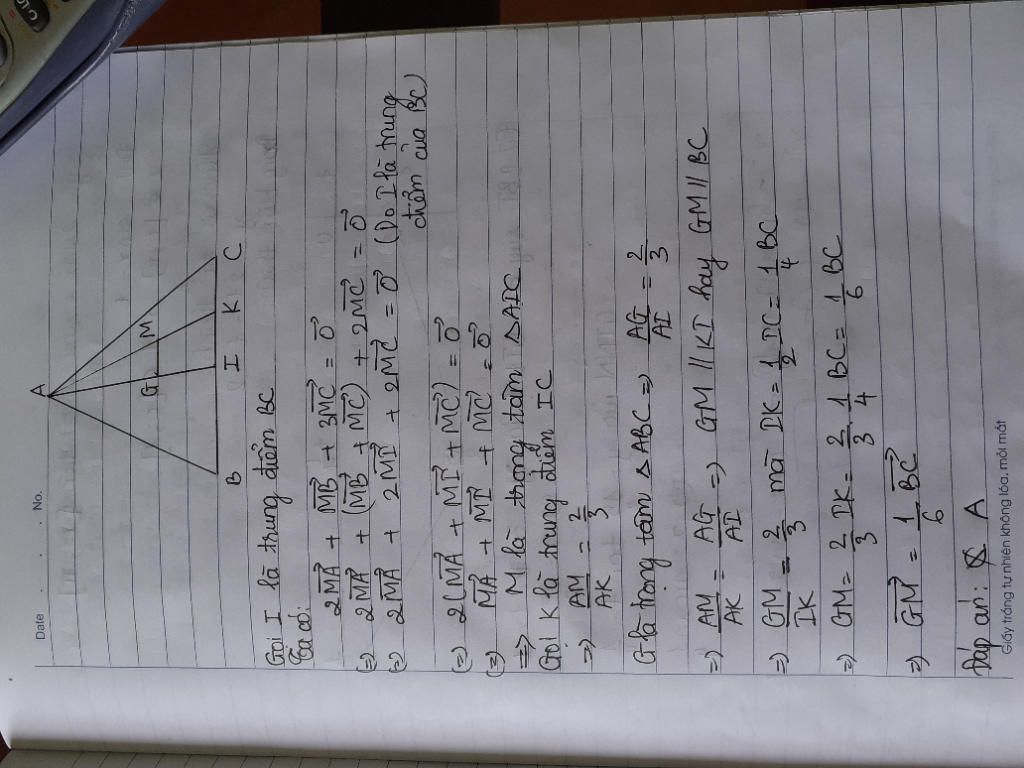 Date . . No.
A
G M
B I K C
Gọi I là trung điểm BC
Ta có:
2MA⃗ + MB⃗ + 3MC⃗ = 0⃗
(=) 2MA⃗ + (MB⃗ + MC⃗) + 2MC⃗ = 0⃗
(=) 2MA⃗ + 2MI⃗ + 2MC⃗ = 0⃗ (Do I là trung
điểm của BC)
(=) 2(MA⃗ + MI⃗ + MC⃗) = 0⃗
(=) MA⃗ + MI⃗ + MC⃗ = 0⃗
=) M là trọng tâm △AIC
Gọi K là trung điểm IC
=) AM/AK = 2/3
G là trọng tâm △ABC =) AG/AI = 2/3
=) AM/AK = AG/AI =) GM // KI hay GM // BC
=) GM/IK = 2/3 mà IK = 1/2 IC = 1/4 BC
=) GM = 2/3 IK = 2/3 . 1/4 BC = 1/6 BC
=) GM⃗ = 1/6 BC⃗
Đáp án: A
Giấy trắng tự nhiên không lóa, mỏi mắt